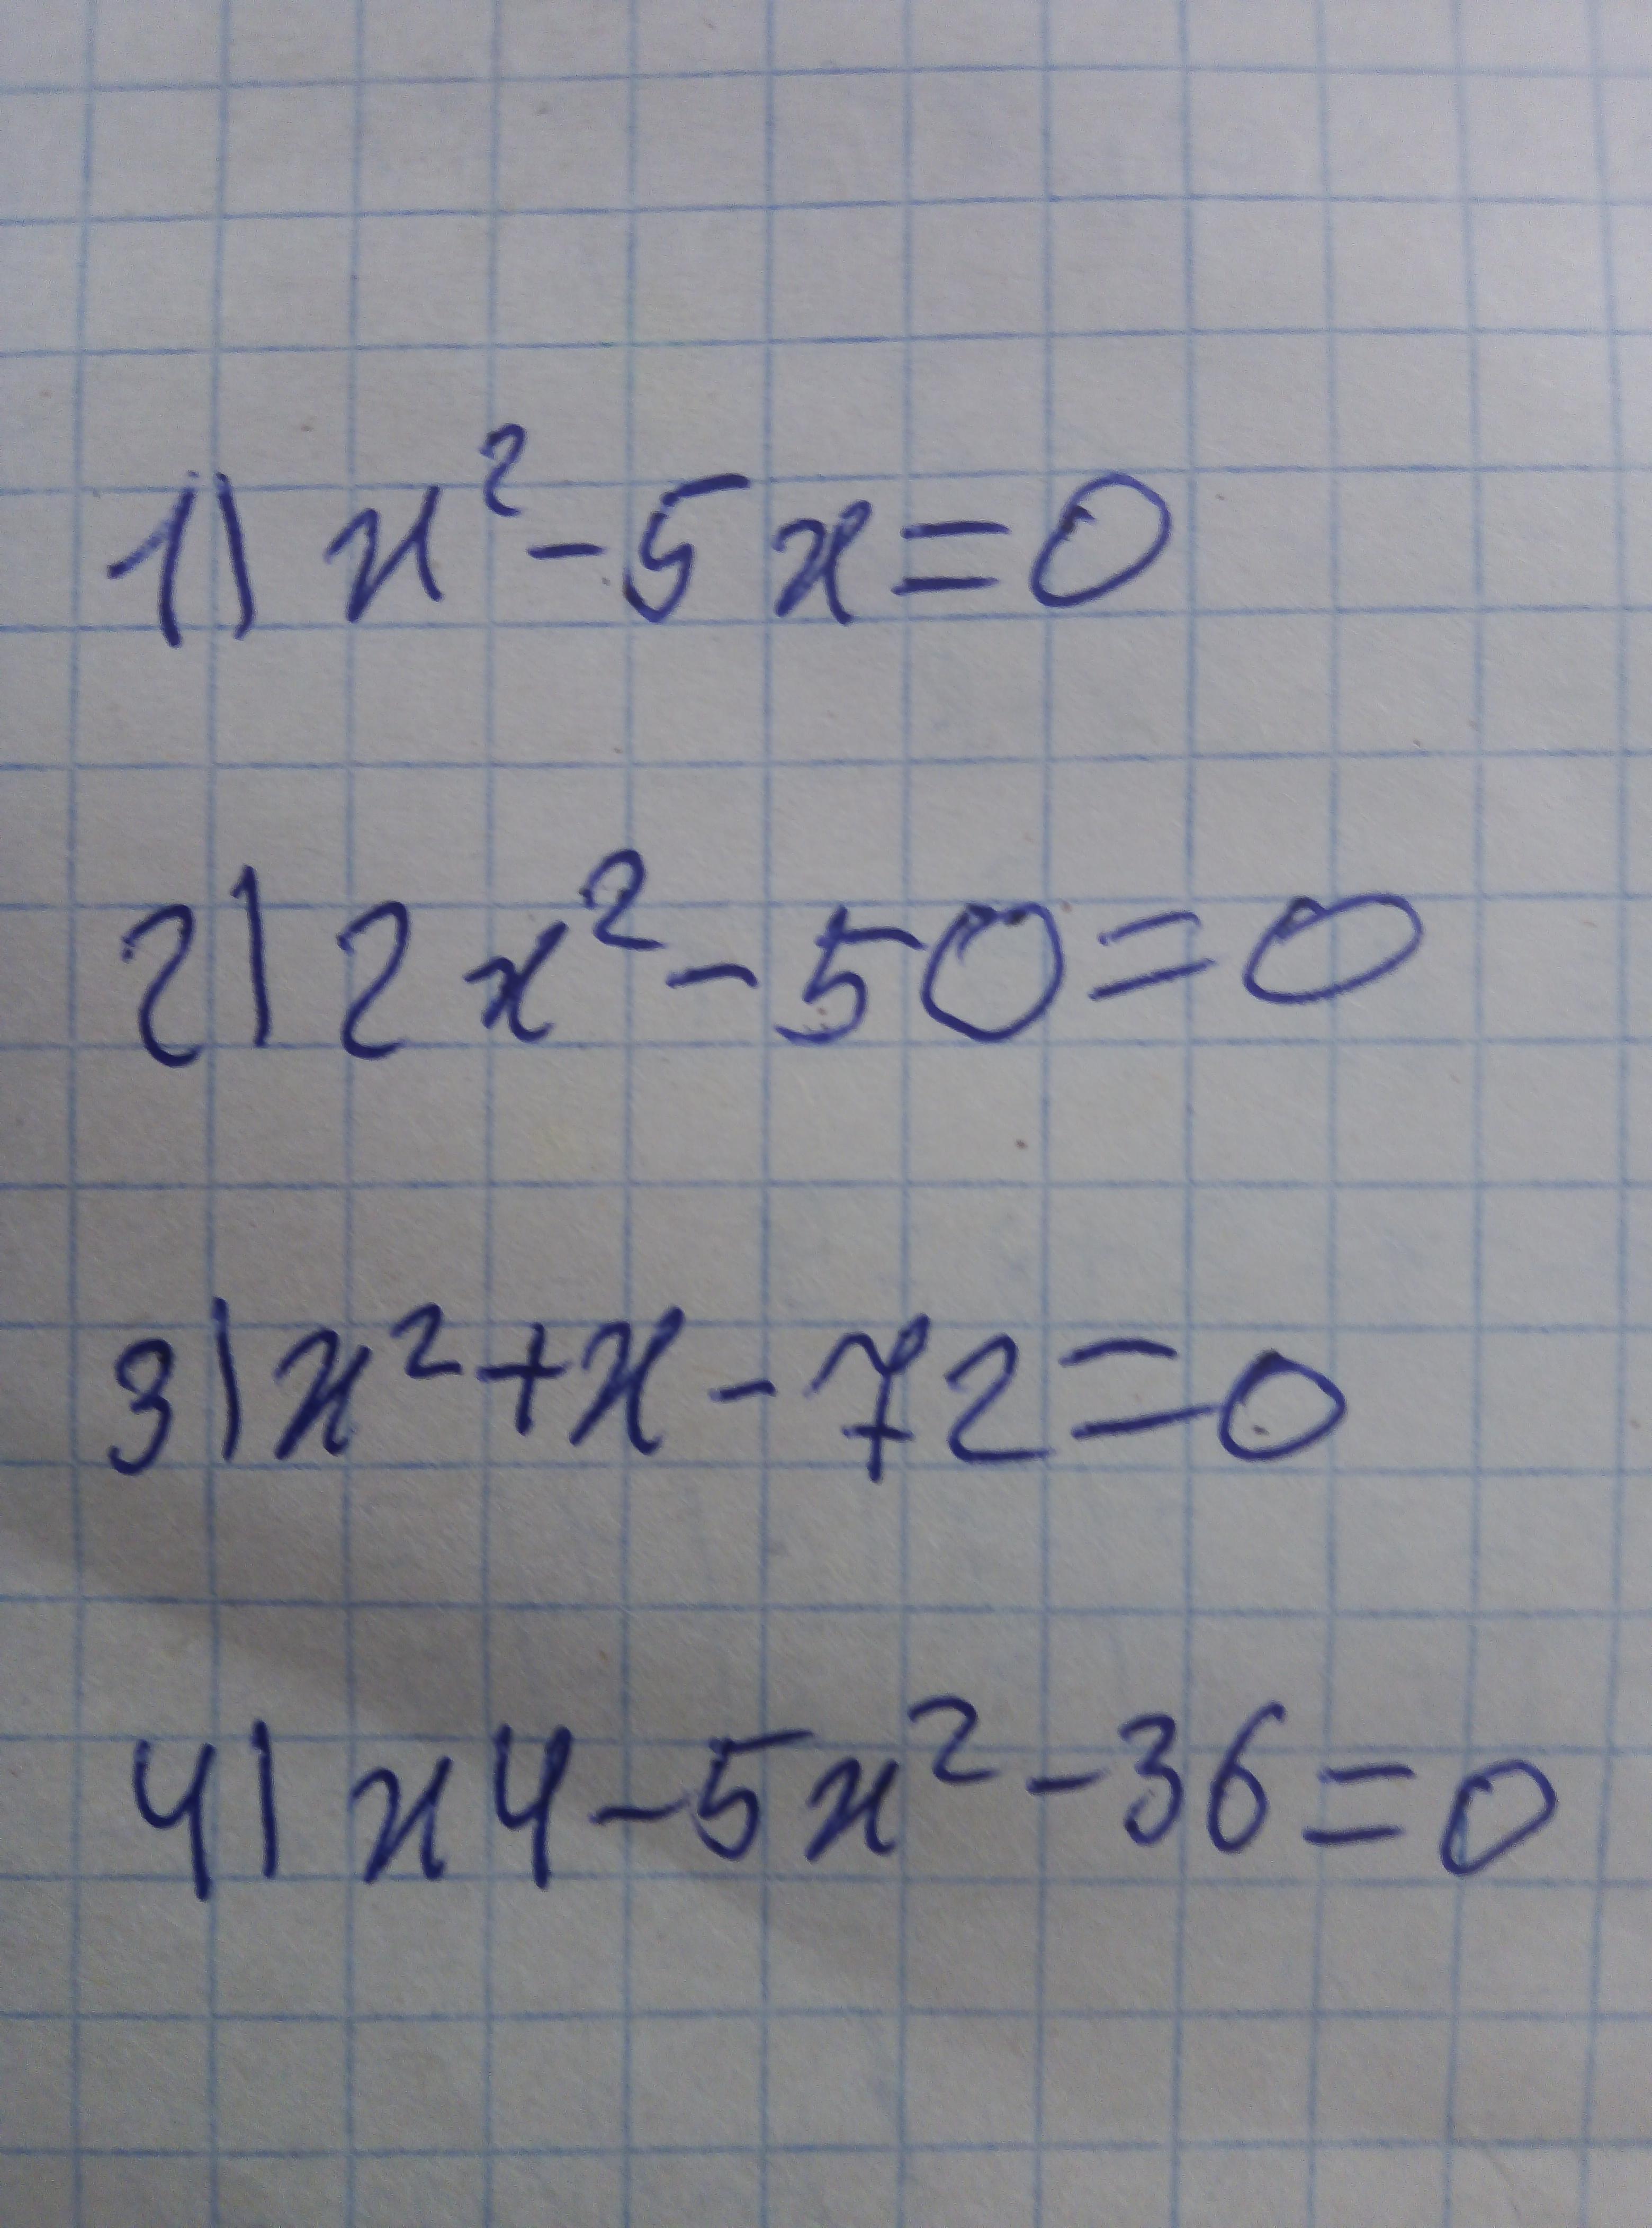 1) x² - 5x = 0
2) 2x² - 50 = 0
3) x² + x - 72 = 0
4) x4 - 5x² - 36 = 0